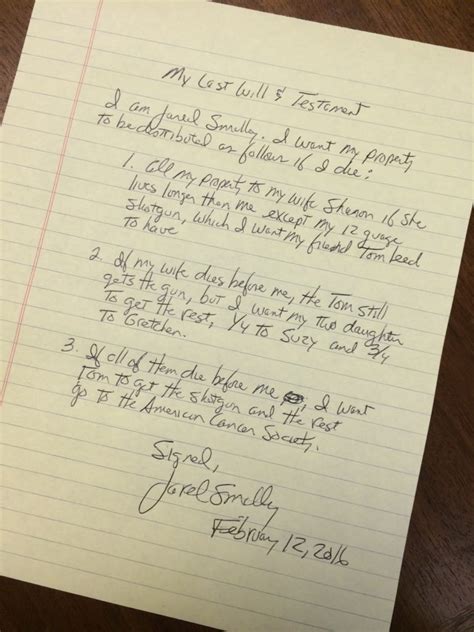 My Last Will & Testament
I am Jared Smully. I want my property
to be distributed as follows if I die:
1. All my property to my wife Shanon if she
lives longer than me except my 12 guage
shotgun, which I want my friend Tom
to have
2. If my wife dies before me, the Tom still
gets the gun, but I want my two daughter
to get the rest, 1/4 to Suzy and 3/4
to Gretchen.
3. If all of them die before me, I want
Tom to get the shotgun and the rest
go to the American Cancer Society.
Signed,
Jared Smully
February 12, 2016